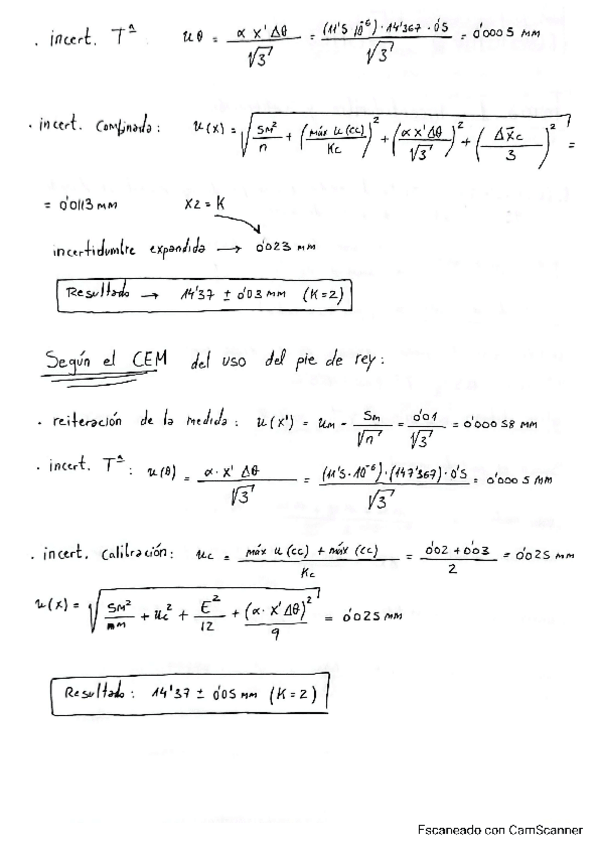 . incert. Tª: uθ = α x' Δθ / √3 = (11'5 10⁻⁶)·14'367·0'5 / √3 = 0'0005 mm
. incert. Combinada: u(x) = √( Sm²/n + (máx u (cc) / Kc)² + (α x' Δθ / √3)² + (Δx̄c / 3)² ) =
= 0'0113 mm x2 = K
incertidumbre expandida → 0'023 mm
Resultado → 14'37 ± 0'03 mm (K=2)
Según el CEM del uso del pie de rey:
. reiteración de la medida: u(x') = um - Sm / √n = 0'01 / √3 = 0'00058 mm
. incert. Tª: u(θ) = α · x' Δθ / √3 = (11'5·10⁻⁶)·(147'367)·0'5 / √3 = 0'0005 mm
. incert. Calibración: uc = máx u (cc) + máx (cc) / Kc = 0'02 + 0'03 / 2 = 0'025 mm
u(x) = √( Sm² / mm + uc² + E² / 12 + (α · x' Δθ)² / 9 ) = 0'025 mm
Resultado: 14'37 ± 0'05 mm (K=2)
Escaneado con CamScanner